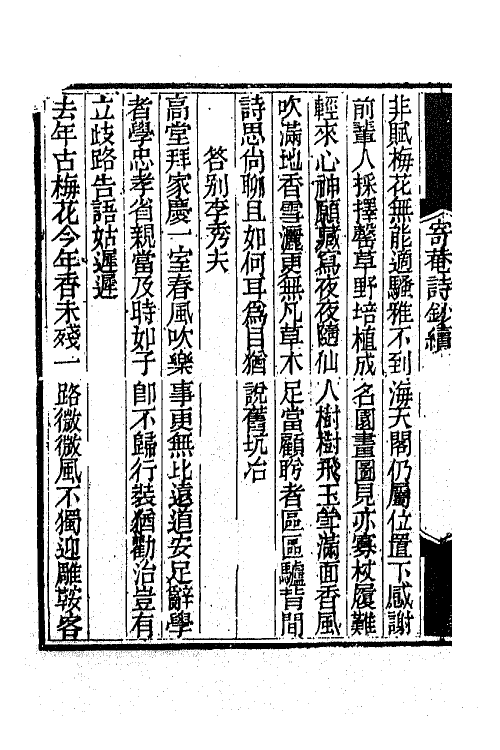 寄菴詩鈔續
非賦梅花無能適騷雅不到海天閣仍屬位置下感謝
前輩人採擇罄草野培植成名園畫圖見亦寡杖履難
輕來心神願藏寫夜夜隨仙人樹樹飛玉聳滿面香風
吹滿地香雪灑更無凡草木足當顧盻者區區驢背間
詩思何聊且如何耳爲目猶說舊坑冶
答别李秀夫
高堂拜家慶一室春風吹樂事更無比遠道安足辭學
者學忠孝省親當及時如子卽不歸行裝猶勸治豈有
立歧路告語姑遲遲
去年古梅花今年香未殘一路微微風不獨迎雕鞍客